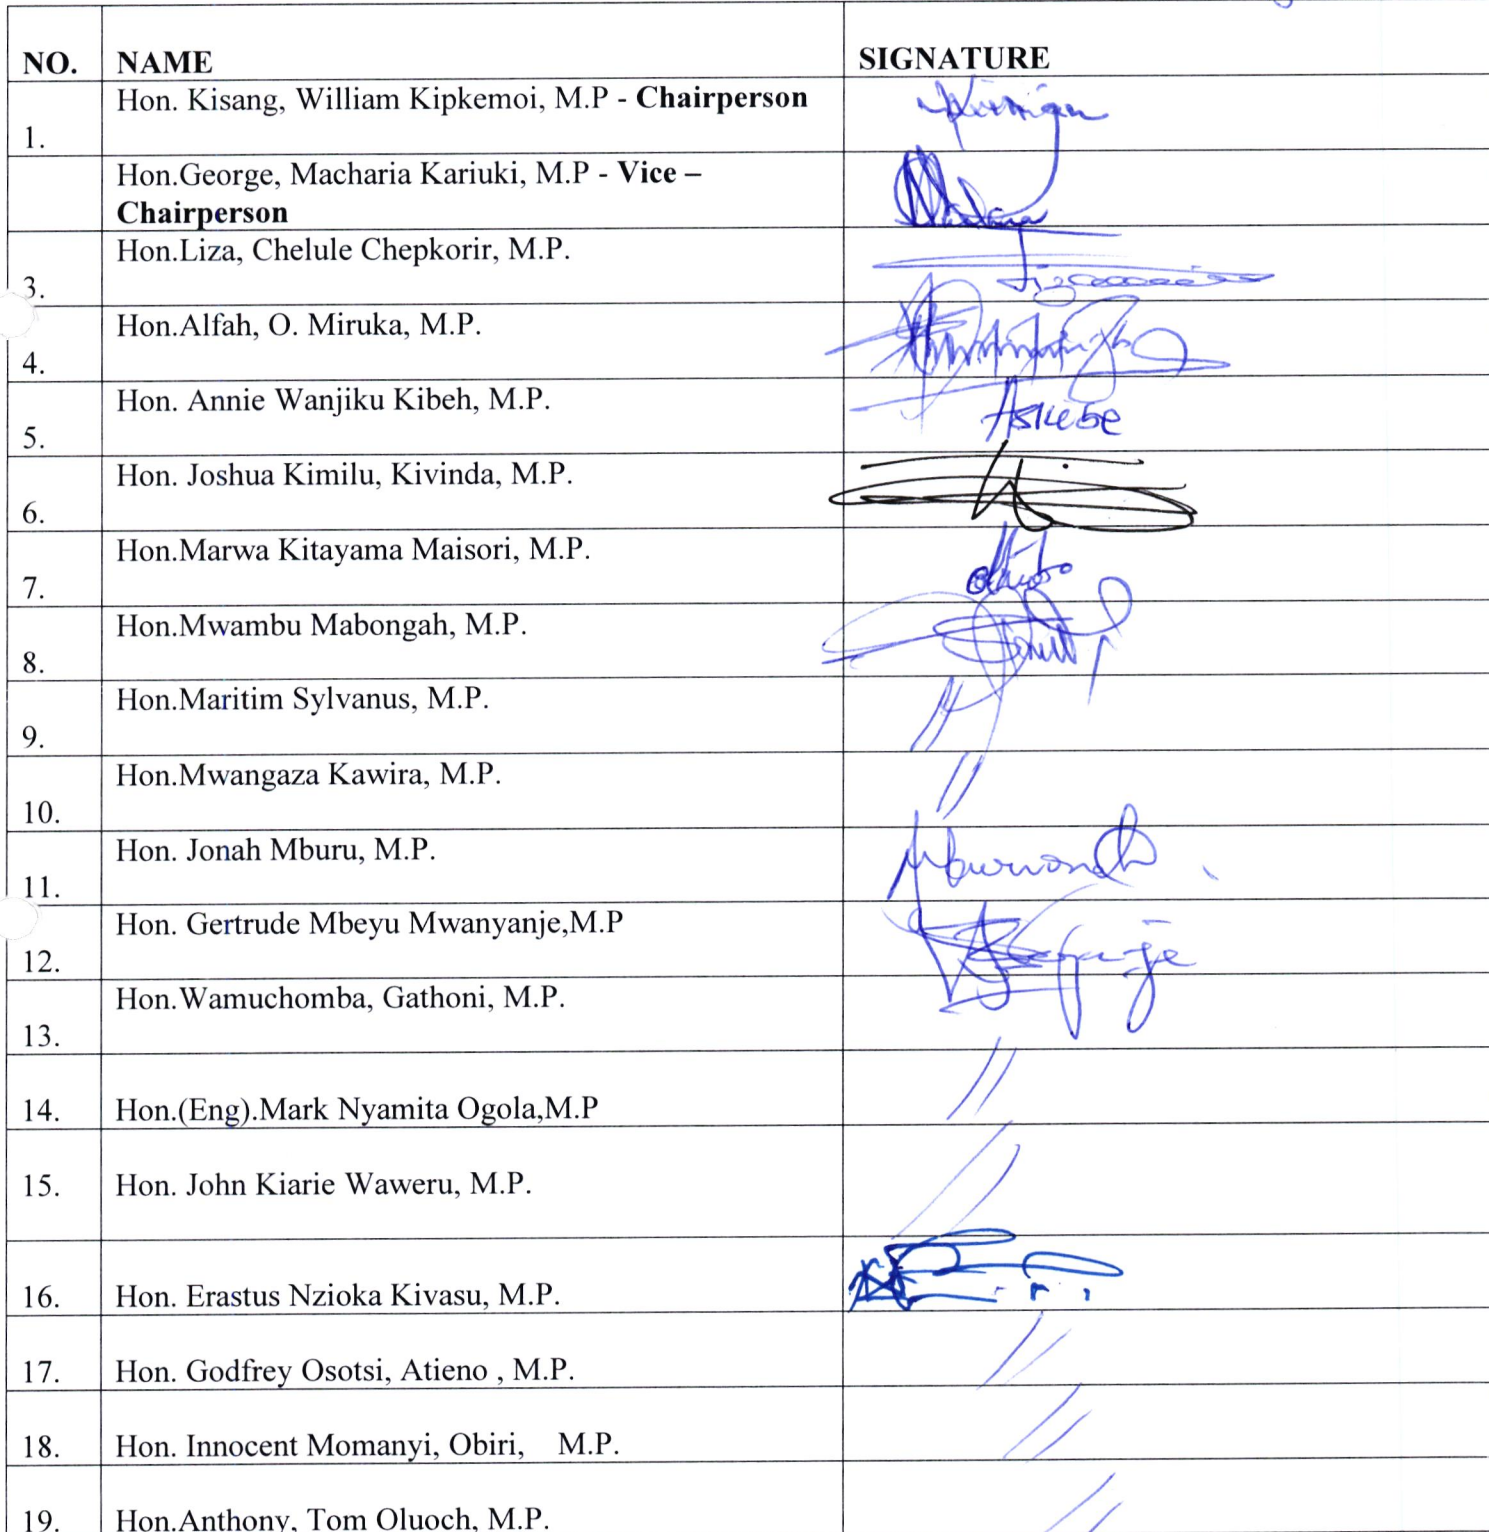 NO. NAME SIGNATURE
1. Hon. Kisang, William Kipkemoi, M.P - Chairperson
Hon.George, Macharia Kariuki, M.P - Vice –
Chairperson
3. Hon.Liza, Chelule Chepkorir, M.P.
4. Hon.Alfah, O. Miruka, M.P.
5. Hon. Annie Wanjiku Kibeh, M.P.
6. Hon. Joshua Kimilu, Kivinda, M.P.
7. Hon.Marwa Kitayama Maisori, M.P.
8. Hon.Mwambu Mabongah, M.P.
9. Hon.Maritim Sylvanus, M.P.
10. Hon.Mwangaza Kawira, M.P.
11. Hon. Jonah Mburu, M.P.
12. Hon. Gertrude Mbeyu Mwanyanje,M.P
13. Hon.Wamuchomba, Gathoni, M.P.
14. Hon.(Eng).Mark Nyamita Ogola,M.P
15. Hon. John Kiarie Waweru, M.P.
16. Hon. Erastus Nzioka Kivasu, M.P.
17. Hon. Godfrey Osotsi, Atieno , M.P.
18. Hon. Innocent Momanyi, Obiri, M.P.
19. Hon.Anthony, Tom Oluoch, M.P.